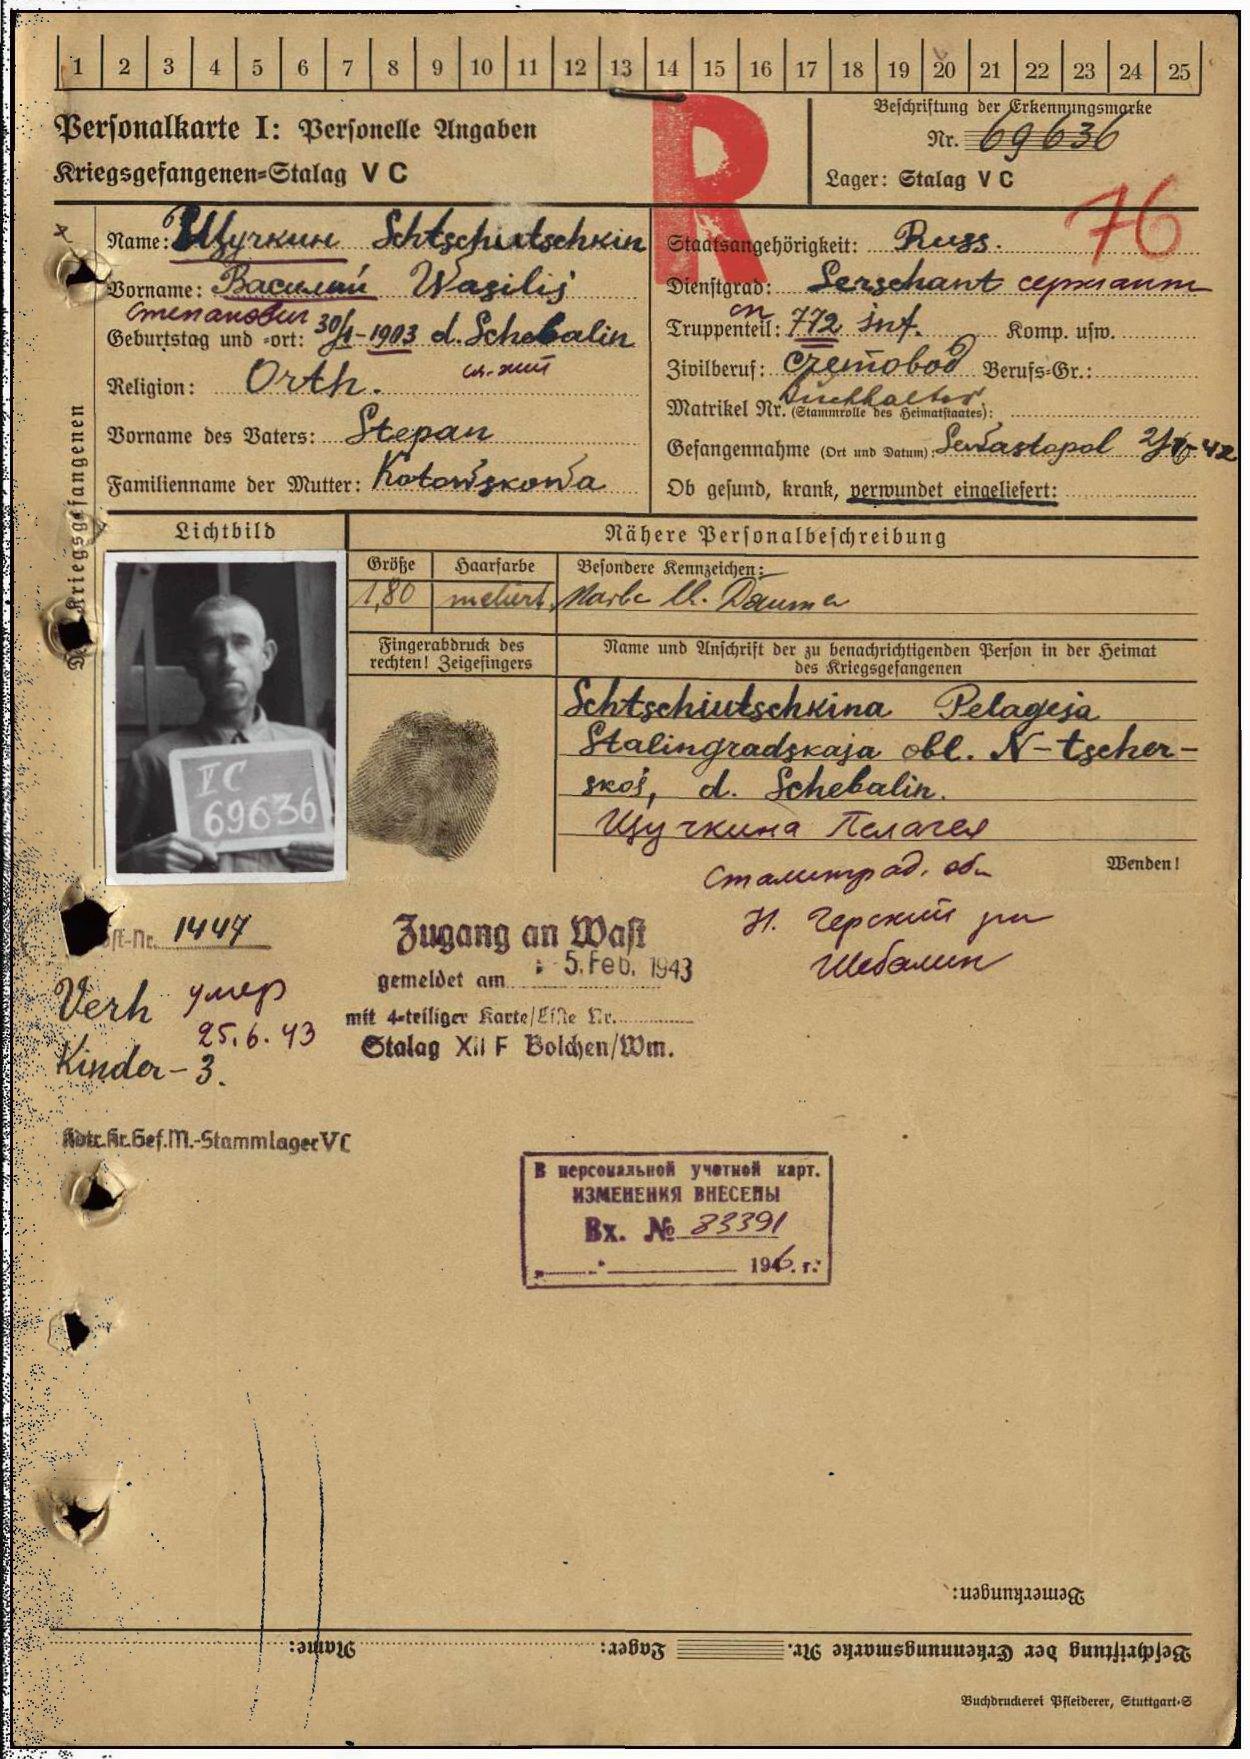 1 2 3 4 5 6 7 8 9 10 11 12 13 14 15 16 17 18 19 20 21 22 23 24 25
Personalkarte I: Personelle Angaben
Kriegsgefangenen-Stalag V C
R
Beschriftung der Erkennungsmarke
Nr. 69636
Lager: Stalag V C
76
Name: Щучкин Schtschiutschkin
Vorname: Василий Wasilij
Степанович
Geburtstag und -ort: 30/1-1903 d. Schebalin
Religion: Orth.
Vorname des Vaters: Stepan
Familienname der Mutter: Kotowskowa
Staatsangehörigkeit: Russ.
Dienstgrad: Serschant сержант
Truppenteil: 772 inf. Komp. usw.
Zivilberuf: Berufs-Gr.:
Buchhalter
Matrikel Nr. (Stammrolle des Heimatstaates):
Gefangennahme (Ort und Datum): Sewastopol
Ob gesund, krank, verwundet eingeliefert:
Des Kriegsgefangenen
Lichtbild
Nähere Personalbeschreibung
Größe Haarfarbe Besondere Kennzeichen:
1,80 meliert. Narbe Daumen
Fingerabdruck des
rechten! Zeigefingers
Name und Anschrift der zu benachrichtigenden Person in der Heimat
des Kriegsgefangenen
V C
69636
Schtschiutschkina Pelageja
Stalingradskaja obl. N-tscher-
skoj, d. Schebalin.
Щучкина Пелагея
Сталинград. об.
Н. Черский р-н
Шебалин
Wenden!
1447
Verh умер
25.6.43
Kinder - 3.
Zugang an Wast
gemeldet am 5. Feb. 1943
mit 4-teiliger Karte/Liste Nr.
Stalag XII F Bolchen/Wm.
Kdtr. Kr. Gef. M.-Stammlager V C
В персональной учетной карт.
ИЗМЕНЕНИЯ ВНЕСЕНЫ
Вх. № 83391
1946 г.
Bemerkungen:
Beschriftung der Erkennungsmarke Nr. Lager: Name:
Buchdruckerei Pfleiderer, Stuttgart-S